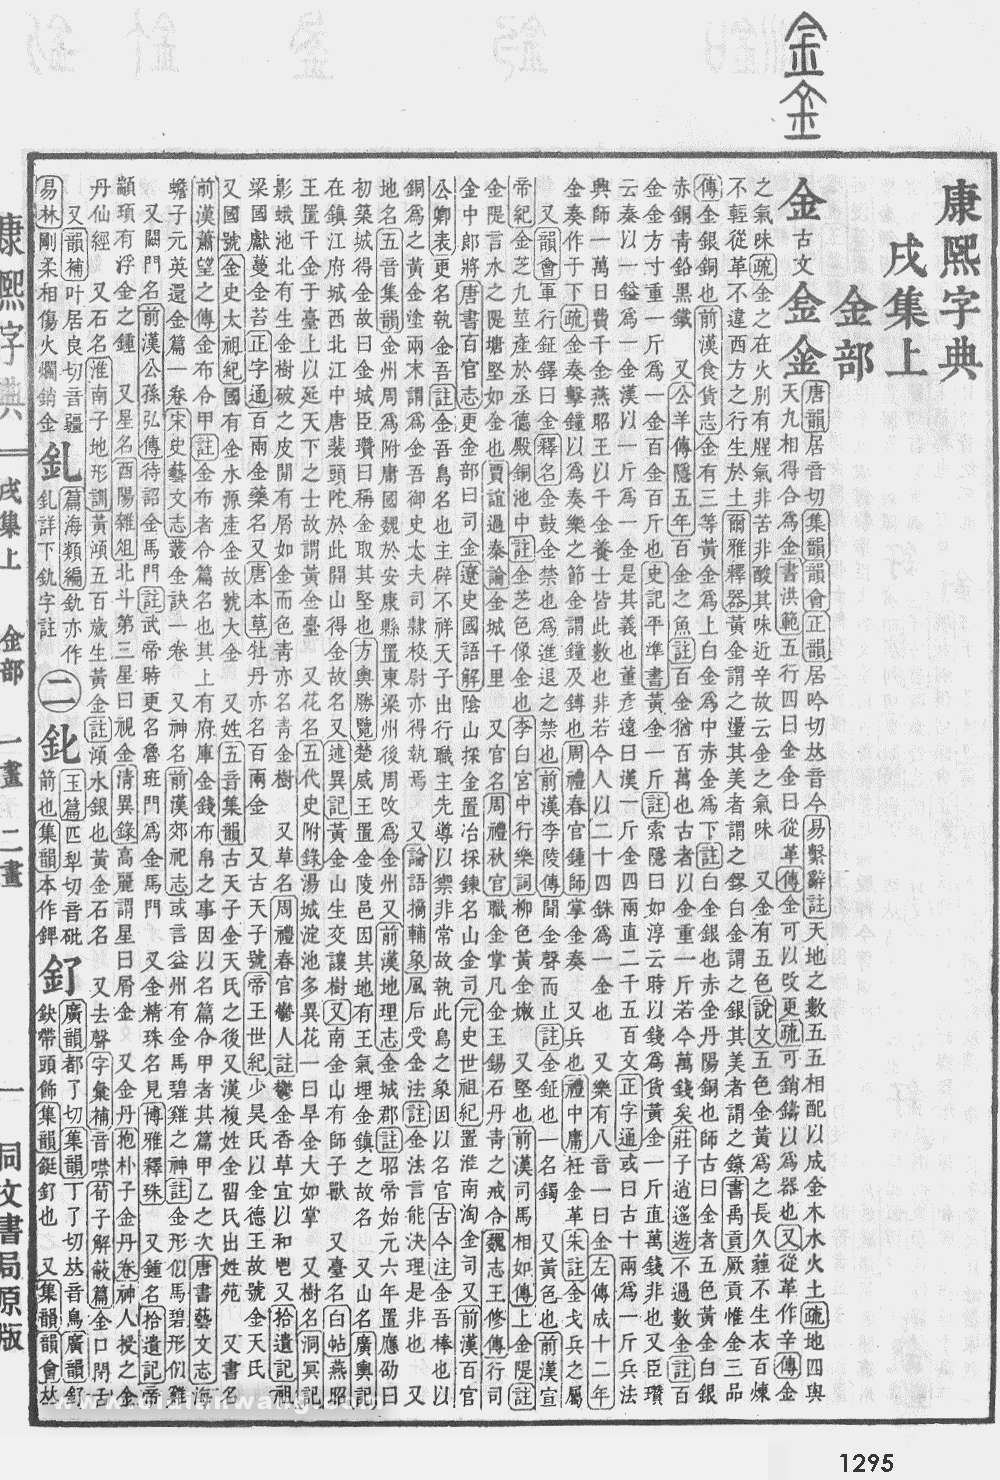 康熙字典
戌集上
金部
金 古文 𨤾 𠊭
唐韻居音切集韻韻會正韻居吟切𠀤音今易繫辭註天地之數五五相配以成金木水火土疏地四與
天九相得合爲金書洪範五行四曰金金曰從革傳金可以攺更疏可銷鑄以爲器也又從革作辛傳金
之氣味疏金之在火別有腥氣非苦非酸其味近辛故云金之氣味 又金有五色說文五色金黃爲之長久薶不生衣百煉
不輕從革不違西方之行生於土爾雅釋器黃金謂之璗其美者謂之鏐白金謂之銀其美者謂之鐐書禹貢厥貢惟金三品
傳金銀銅也前漢食貨志金有三等黃金爲上白金爲中赤金爲下註白金銀也赤金丹陽銅也師古曰金者五色黃金白銀
赤銅靑鉛黑鐵 又公羊傳隱五年百金之魚註百金猶百萬也古者以金重一斤若今萬錢矣莊子逍遙遊不過數金註百
金金方寸重一斤爲一金百金百斤也史記平準書黃金一斤註索隱曰如淳云時以錢爲貨黃金一斤直萬錢非也又臣瓚
云秦以一鎰爲一金漢以一斤爲一金是其義也董彥遠曰漢一斤金四兩直二千五百文正字通或曰古十兩爲一斤兵法
興師一萬日費千金燕昭王以千金養士皆此數也非若今人以二十四銖爲一金也 又樂有八音一曰金左傳成十二年
金奏作于下疏金奏擊鐘以爲奏樂之節金謂鐘及鏄也周禮春官鍾師掌金奏 又兵也禮中庸衽金革朱註金戈兵之屬
又韻會軍行鉦鐸曰金釋名金鼓金禁也爲進退之禁也前漢李陵傳聞金聲而止註金鉦也一名鐲 又黃色也前漢宣
帝紀金芝九莖產於丞德殿銅池中註金芝色像金也李白宮中行樂詞柳色黃金嫩 又堅也前漢司馬相如傳上金隄註
金隄言水之隄塘堅如金也賈誼過秦論金城千里 又官名周禮秋官職金掌凡金玉錫石丹靑之戒令魏志王修傳行司
金中郎將唐書百官志更金部曰司金遼史國語解隂山採金置冶採鍊名山金司元史世祖紀置淮南淘金司又前漢百官
公卿表更名執金吾註金吾鳥名也主辟不祥天子出行職主先導以禦非常故執此鳥之象因以名官古今注金吾棒也以
銅爲之黃金塗兩末謂爲金吾御史大夫司隷校尉亦得執焉 又論語摘輔象風后受金法註金法言能決理是非也 又
地名五音集韻金州周爲附庸國魏於安康縣置東梁州後周攺爲金州又前漢地理志金城郡註昭帝始元六年置應劭曰
初築城得金故曰金城臣瓚曰稱金取其堅也方輿勝覽楚威王置金陵邑因其地有王氣埋金鎮之故名 又山名廣輿記
在鎮江府城西北江中唐裴頭陀於此開山得金故名又述異記黃金山生交讓樹又南金山有師子獸 又臺名白帖燕昭
王置千金于臺上以延天下之士故謂黃金臺 又花名五代史附錄湯城淀池多異花一曰旱金大如掌 又樹名洞冥記
影蛾池北有生金樹破之皮閒有屑如金而色靑亦名靑金樹 又草名周禮春官鬱人註鬱金香草宜以和鬯又拾遺記祖
梁國獻蔓金苔正字通百兩金藥名又唐本草牡丹亦名百兩金 又古天子號帝王世紀少昊氏以金德王故號金天氏
又國號金史太祖紀國有金水源產金故號大金 又姓五音集韻古天子金天氏之後又漢複姓金留氏出姓苑 又書名
前漢蕭望之傳金布令甲註金布者令篇名也其上有府庫金錢布帛之事因以名篇令甲者其篇甲乙之次唐書藝文志海
蟾子元英還金篇一卷宋史藝文志叢金訣一卷 又神名前漢郊祀志或言益州有金馬碧雞之神註金形似馬碧形似雞
又闢門名前漢公孫弘傳待詔金馬門註武帝時更名魯班門爲金馬門 又金精珠名見博雅釋珠 又鍾名拾遺記帝
顓頊有浮金之鍾 又星名酉陽雜俎北斗第三星曰視金淸異錄高麗謂星曰屑金 又金丹抱朴子金丹卷神人授之金
丹仙經 又石名淮南子地形訓黃澒五百歲生黃金註澒水銀也黃金石名 又去聲字彙補音噤荀子解蔽篇金口閉舌
又韻補叶居良切音疆
易林剛柔相傷火爛銷金
釓
篇海類編釚亦作
釓詳下釚字註
二
釓
玉篇匹犁切音砒
箭也集韻本作錍
釕
廣韻都了切集韻丁了切𠀤音鳥廣韻釕
鈌帶頭飾集韻鋌釕也 又集韻韻會𠀤
康熙字典
戌集上 金部 一畫 二畫
一
同文書局原版
1295